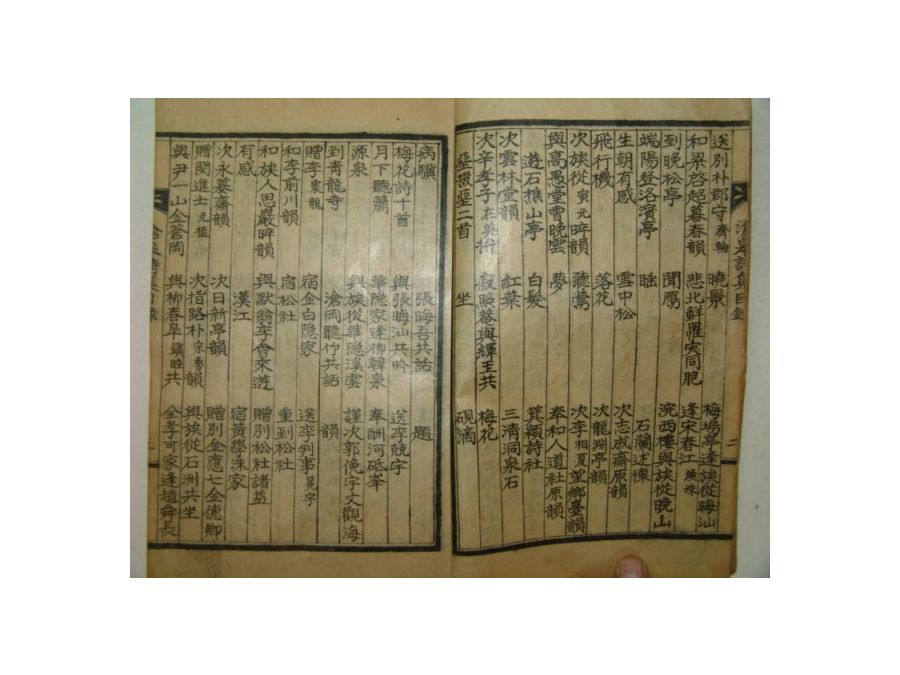 送別朴郡守齊輪 曉景 梅塢亭逢族從晦汕
和梁啓超暮春韻 悲北鮮罹灾同胞 逢宋春江
到晩松亭 聞鴈 浣西樓與族從晩山
端陽登洛濱亭 睡 石蘭述懷
生朝有感 雲中松 次志成齋原韻
飛行機 落花 次龍淵亭韻
次族從寅元晬韻 聽鶯 次李相夏望鄕臺韻
與高愚堂曺晩雲 夢 奉和人道社原韻
遊石樵山亭 白髮 箕潁詩社
次雲林堂韻 紅葉 三淸洞泉石
次辛孝子在英 寂照菴與輝王共 梅花
二首 坐 硯滴
滄泉詩集目錄 二
病驥 張晦吾共話 題
梅花詩十首 與張晦汕共吟 送李兢宇
月下聽簫 華隱家逢柳韓泉 奉酬河砥峯
源泉 與族從華隱溪雲 謹次郭俛宇文觀海
到靑龍寺 滄岡聽竹共話 韻
贈李龍 宿金白隱家 送李判事晃宇
和李前川韻 宿松社 重到松社
和族人思巖晬韻 與默翁李會來遊 贈別松社諸益
有感 漢江 宿黃學洙家
次永慕齋韻 次日新亭韻 贈別金應七金德卿
贈閔進士元植 次指路朴宗魯韻 與族從石洲共坐
與尹一山金蒼岡 與柳春皐鎭睦共 全孝可家逢趙舜長